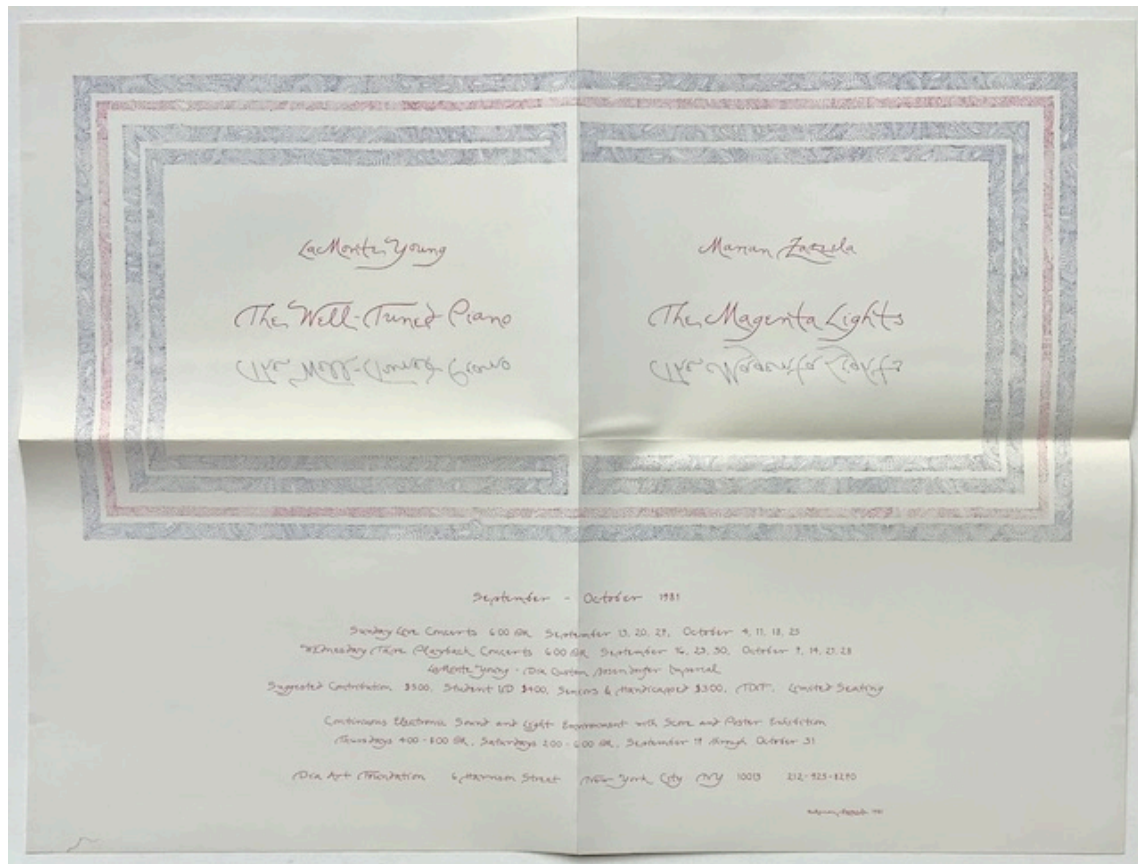 La Monte Young
Marian Zazeela
The Well-Tuned Piano
The Magenta Lights
The Well-Tuned Piano
The Magenta Lights
September - October 1981
Sunday Live Concerts 6:00 PM, September 13, 20, 27, October 4, 11, 18, 25
Wednesday Tape Playback Concerts 6:00 PM, September 16, 23, 30, October 7, 14, 21, 28
La Monte Young - Dia Custom Bosendorfer Imperial
Suggested Contribution $5.00, Student ID $4.00, Seniors & Handicapped $3.00, TDF, Limited Seating
Continuous Electronic Sound and Light Environment with Score and Poster Exhibition
Thursdays 4:00 - 8:00 PM, Saturdays 2:00 - 6:00 PM, September 17 through October 31
Dia Art Foundation 6 Harrison Street New York City NY 10013 212-925-8270